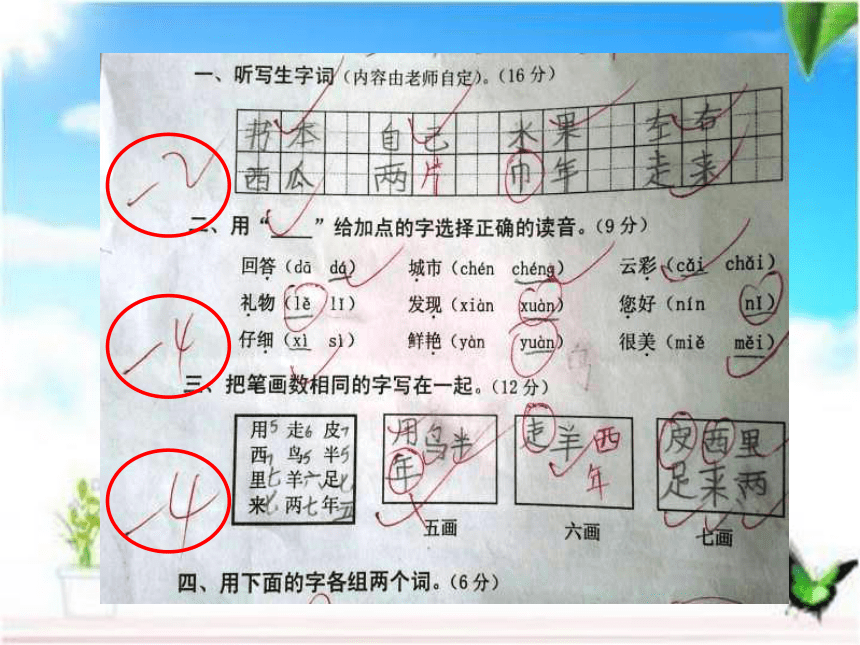 一、听写生字词(内容由老师自定)。(16分)
书本 自己 水果 左右
西瓜 两片 巾年 走来
-2
二、用“____”给加点的字选择正确的读音。(9分)
回答(dā dá) 城市(chén chéng) 云彩(cǎi chǎi)
礼物(lě lǐ) 发现(xiàn xuàn) 您好(nín nǐ)
仔细(xì sì) 鲜艳(yàn yuàn) 很美(miě měi)
-4
鸟
三、把笔画数相同的字写在一起。(12分)
用5 走6 皮7
西7 鸟5 半5
里七 羊六 足七
来七 两七 年五
用鸟半
年
走羊西
年
皮西里
足来两
-4
五画 六画 七画
四、用下面的字各组两个词。(6分)